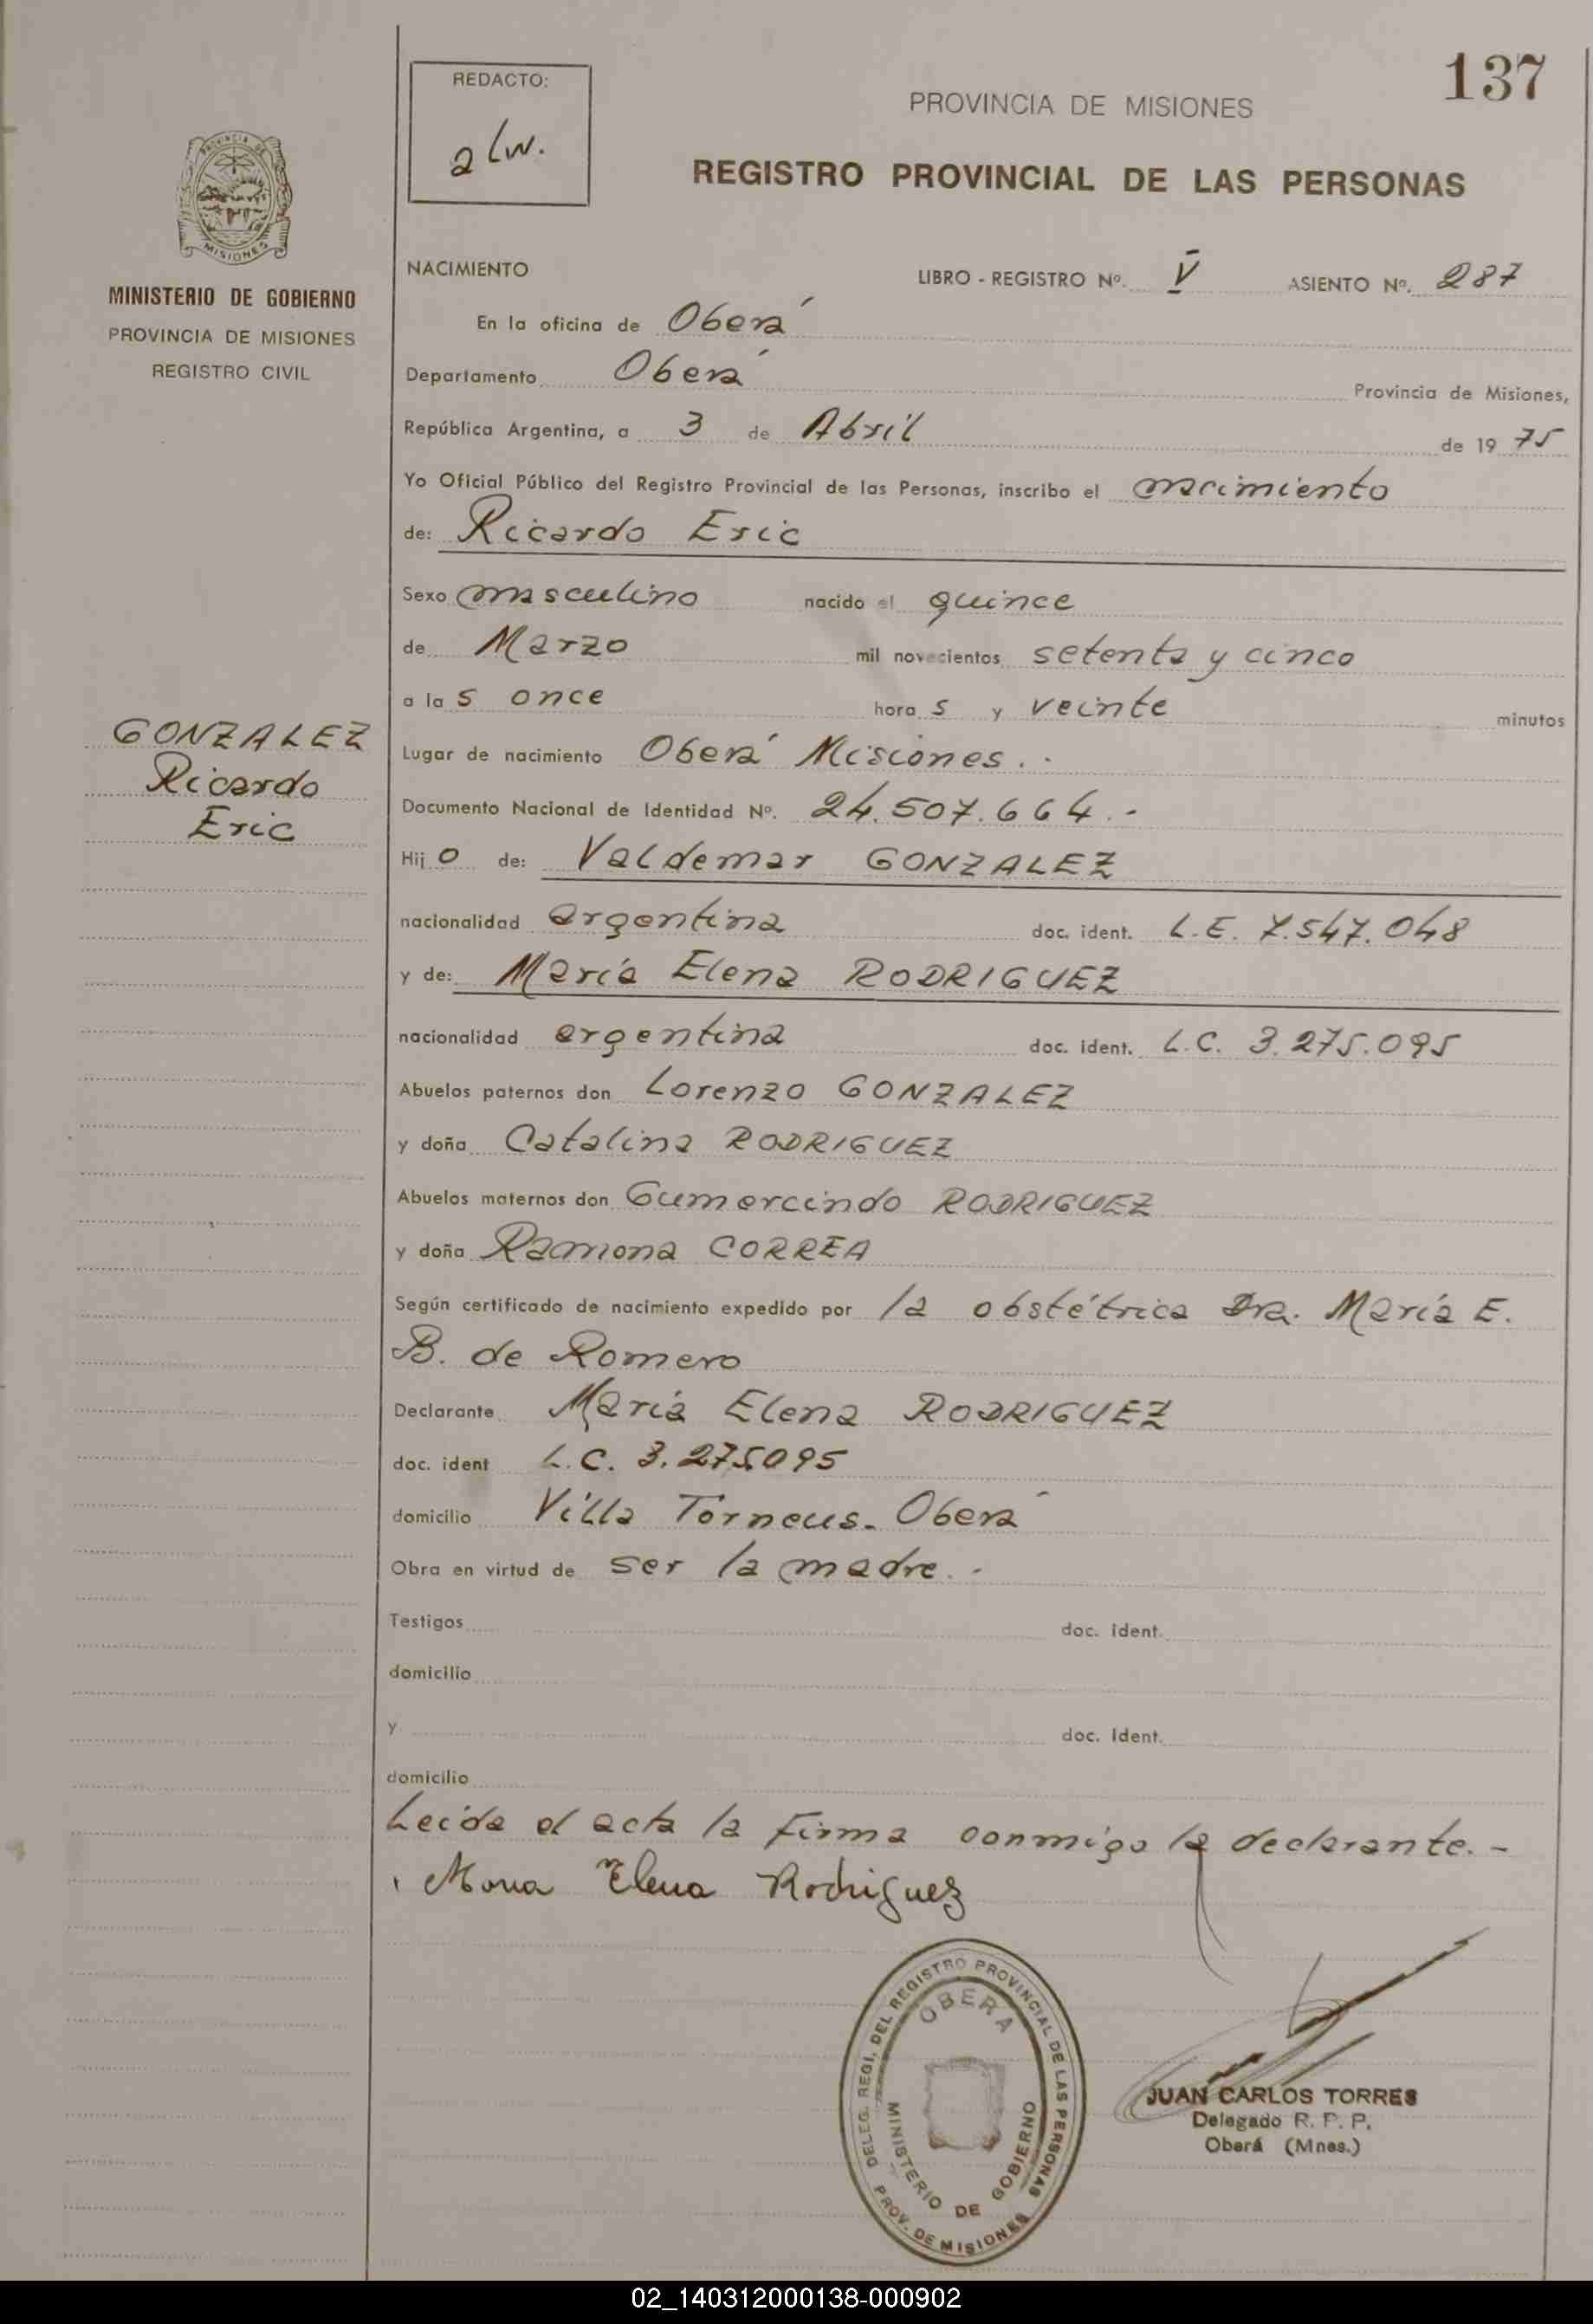 137
REDACTO:
alw.
PROVINCIA DE MISIONES
REGISTRO PROVINCIAL DE LAS PERSONAS
PROVINCIA DE
MISIONES
MINISTERIO DE GOBIERNO
PROVINCIA DE MISIONES
REGISTRO CIVIL
NACIMIENTO LIBRO - REGISTRO Nº. V ASIENTO Nº. 287
En la oficina de Oberá
Departamento Oberá Provincia de Misiones,
República Argentina, a 3 de Abril de 19 75
Yo Oficial Público del Registro Provincial de las Personas, inscribo el nacimiento
de: Ricardo Eric
Sexo masculino nacido el quince
de Marzo mil novecientos setenta y cinco
a la s once hora s y veinte minutos
GONZALEZ
Ricardo
Eric
Lugar de nacimiento Oberá Misiones. -
Documento Nacional de Identidad Nº. 24.507.664.-
Hij o de: Valdemar GONZALEZ
nacionalidad argentina doc. ident. L.E. 7.547.048
y de: María Elena RODRIGUEZ
nacionalidad argentina doc. ident. L.C. 3.275.095
Abuelos paternos don Lorenzo GONZALEZ
y doña Catalina RODRIGUEZ
Abuelos maternos don Gumercindo RODRIGUEZ
y doña Ramona CORREA
Según certificado de nacimiento expedido por la obstétrica Dra. María E.
B. de Romero
Declarante María Elena RODRIGUEZ
doc. ident L.C. 3.275.095
domicilio Villa Torneus. Oberá
Obra en virtud de ser la madre. -
Testigos doc. ident.
domicilio
y doc. ident.
domicilio
Leída el acta la firma conmigo la declarante. -
Maria Elena Rodriguez
DELEG. REGI. DEL REGISTRO PROVINCIAL DE LAS PERSONAS
OBERA
MINISTERIO DE GOBIERNO
PROV. DE MISIONES
JUAN CARLOS TORRES
Delegado R. P. P.
Oberá (Mnes.)
02_140312000138-000902